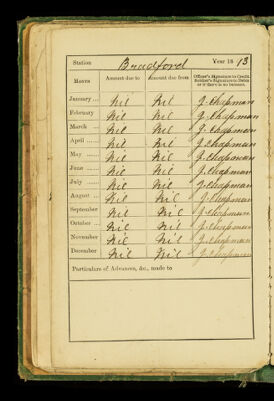 Station Bradford Year 18 73
MONTH Amount due to Amount due from Officer's Signature to Credit. Soldier's Signature to Debts or if there is no balance.
January ... Nil Nil J. Chapman
February Nil Nil J. Chapman
March ... Nil Nil J. Chapman
April ... Nil Nil J. Chapman
May ... Nil Nil J. Chapman
June ... Nil Nil J. Chapman
July ... Nil Nil J. Chapman
August ... Nil Nil J. Chapman
September Nil Nil J. Chapman
October ... Nil Nil J. Chapman
November Nil Nil J. Chapman
December Nil Nil J. Chapman
Particulars of Advances, &c., made to